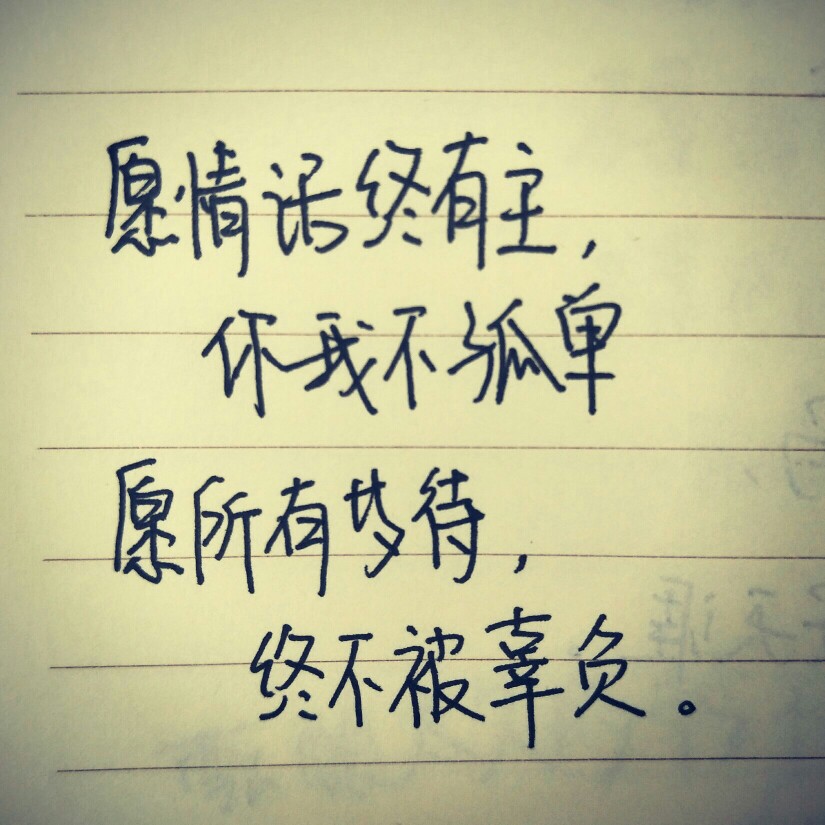 愿情话终有主,
你我不孤单
愿所有岁待,
终不被辜负。